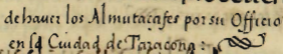 de hauer los Almutaçafes por su Officio
en la Ciudad de Taraçona: